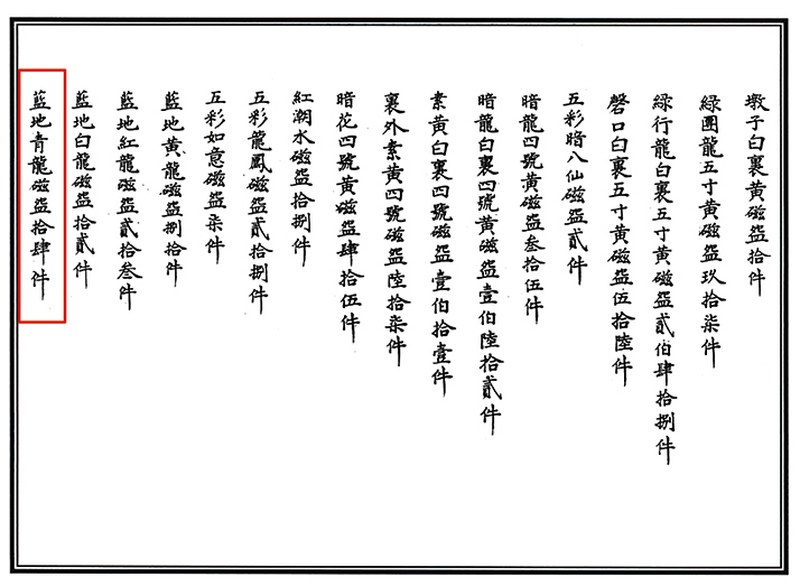 墩子白裏黃磁盌拾件
綠團龍五寸黃磁盌玖拾柒件
綠行龍白裏五寸黃磁盌貳伯肆拾捌件
磬口白裏五寸黃磁盌伍拾陸件
五彩暗八仙磁盌貳件
暗龍四號黃磁盌叁拾伍件
暗龍白裏四號黃磁盌壹伯陸拾貳件
素黃白裏四號磁盌壹伯拾壹件
裏外素黃四號磁盌陸拾柒件
暗花四號黃磁盌肆拾伍件
紅潮水磁盌拾捌件
五彩龍鳳磁盌貳拾捌件
五彩如意磁盌柒件
藍地黃龍磁盌捌拾件
藍地紅龍磁盌貳拾叁件
藍地白龍磁盌拾貳件
藍地青龍磁盌拾肆件